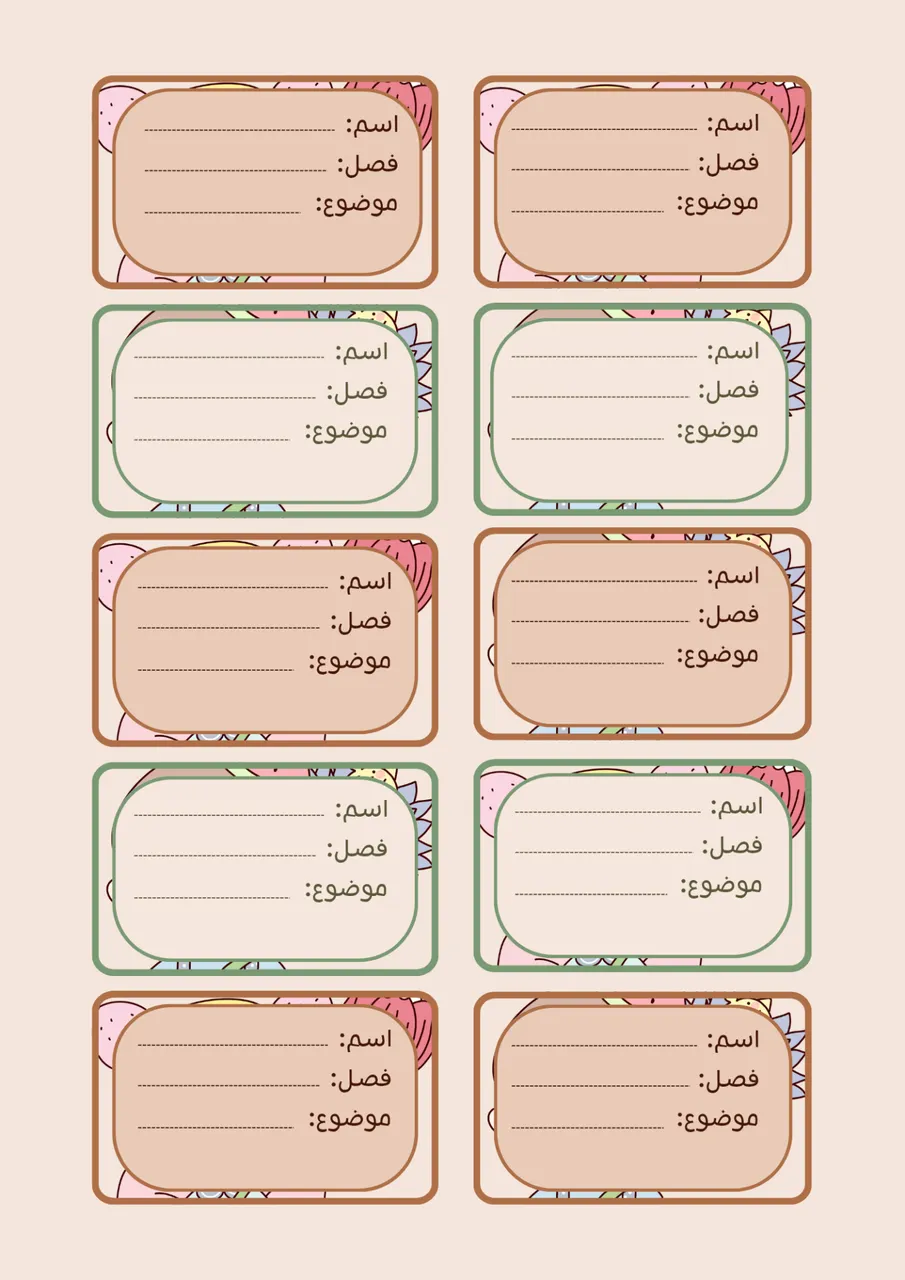 اسم:
فصل:
موضوع:
اسم:
فصل:
موضوع:
اسم:
فصل:
موضوع:
اسم:
فصل:
موضوع:
اسم:
فصل:
موضوع:
اسم:
فصل:
موضوع:
اسم:
فصل:
موضوع:
اسم:
فصل:
موضوع:
اسم:
فصل:
موضوع:
اسم:
فصل:
موضوع: